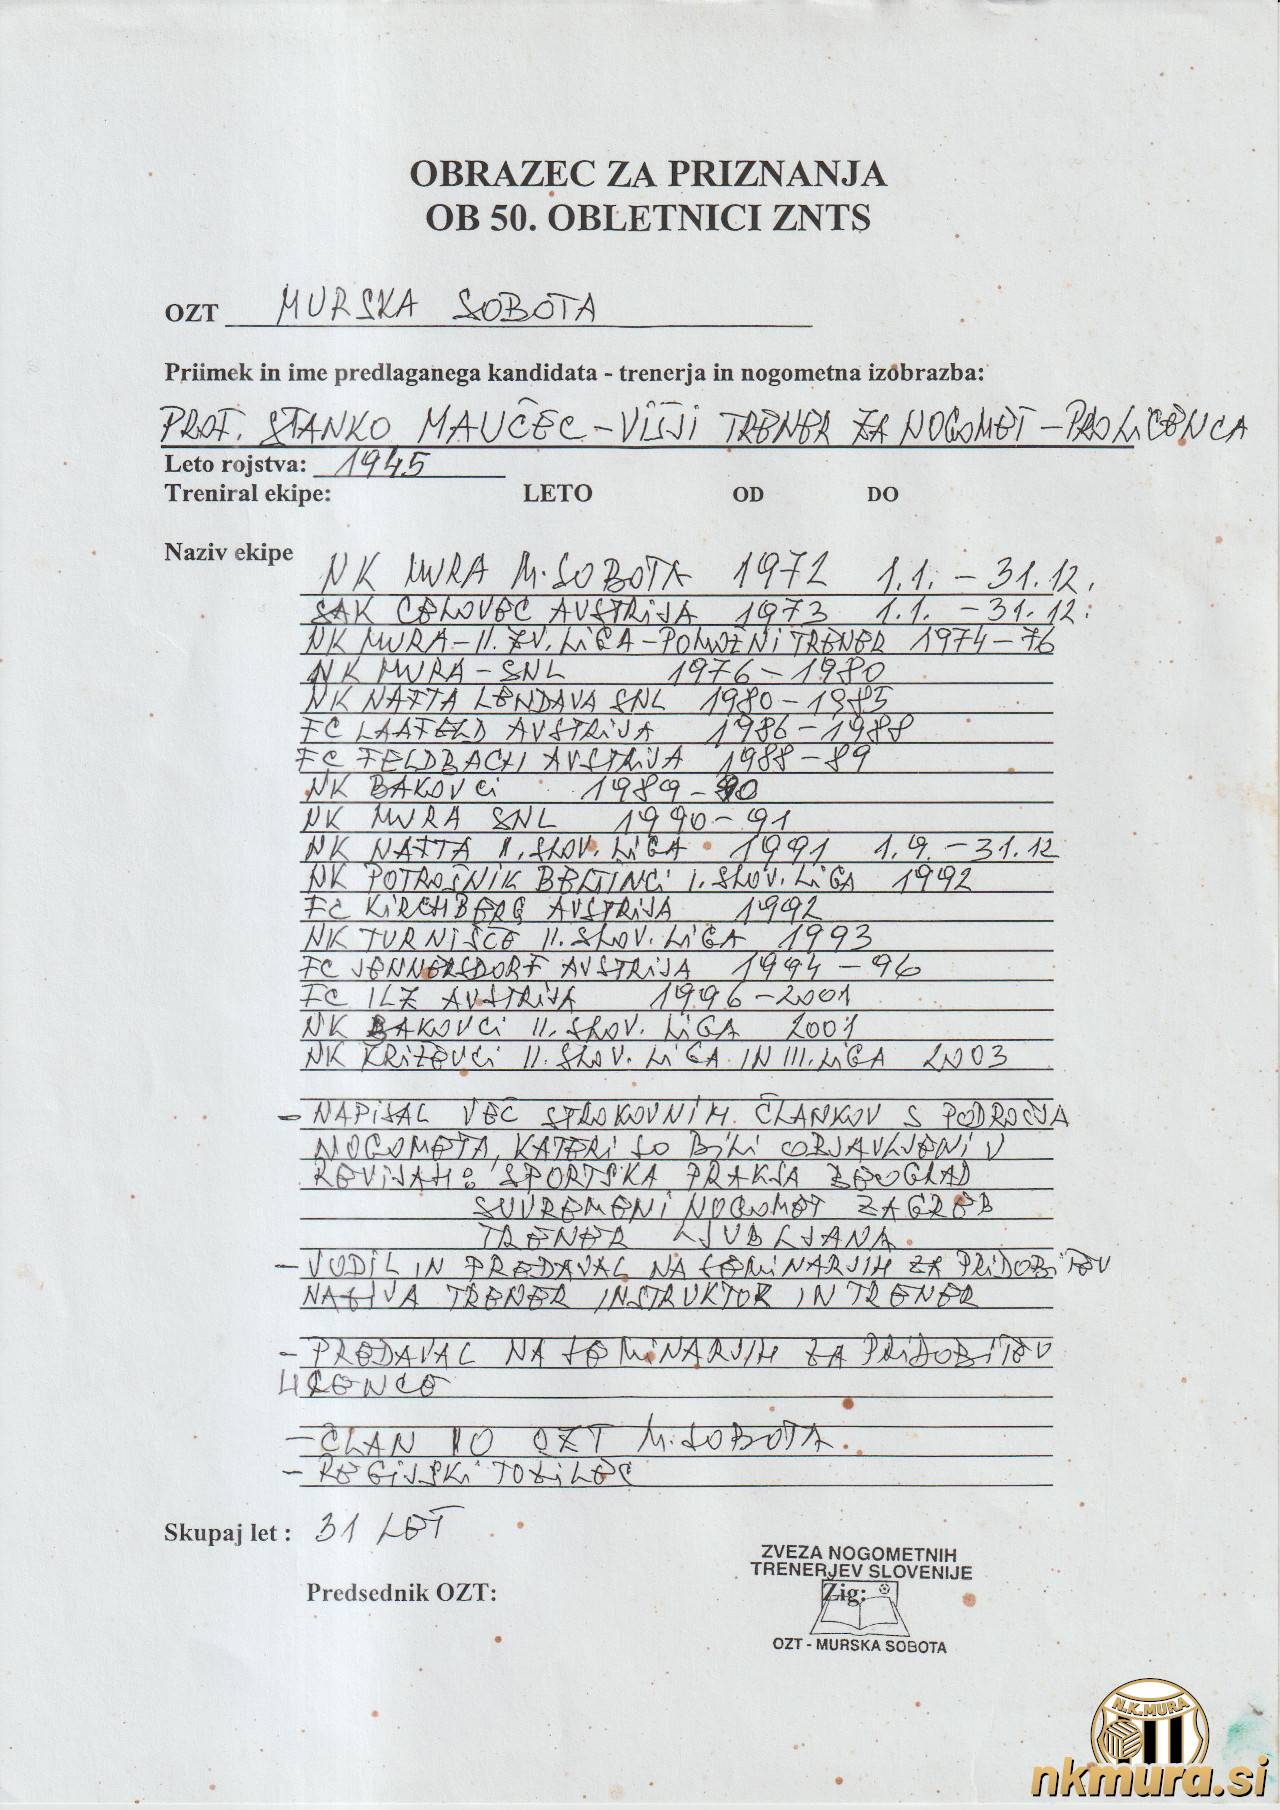 OBRAZEC ZA PRIZNANJA
OB 50. OBLETNICI ZNTS
OZT MURSKA SOBOTA
Priimek in ime predlaganega kandidata - trenerja in nogometna izobrazba:
PROF. STANKO MAUČEC - VIŠJI TRENER ZA NOGOMET - PROLICENCA
Leto rojstva: 1945
Treniral ekipe: LETO OD DO
Naziv ekipe
NK MURA M. SOBOTA 1972 1.1. - 31.12.
SAK CELOVEC AVSTRIJA 1973 1.1. - 31.12.
NK MURA - II. ZV. LIGA - POMOŽNI TRENER 1974 - 76
NK MURA - SNL 1976 - 1980
NK NAFTA LENDAVA SNL 1980 - 1985
FC LAAFELD AVSTRIJA 1986 - 1988
FC FELDBACH AVSTRIJA 1988 - 89
NK BAKOVCI 1989 - 90
NK MURA SNL 1990 - 91
NK NAFTA II. SLOV. LIGA 1991 1.9. - 31.12
NK POTROŠNIK BELTINCI I. SLOV. LIGA 1992
FC KIRCHBERG AVSTRIJA 1992
NK TURNIŠČE II. SLOV. LIGA 1993
FC JENNERSDORF AVSTRIJA 1994 - 96
FC ILZ AVSTRIJA 1996 - 2001
NK BAKOVCI II. SLOV. LIGA 2001
NK KRIŽEVCI II. SLOV. LIGA IN III. LIGA 2003
- NAPISAL VEČ STROKOVNIH ČLANKOV S PODROČJA
NOGOMETA, KATERI SO BILI OBJAVLJENI V
REVIJAH: SPORTSKA PRAKSA BEOGRAD
SUVREMENI NOGOMET ZAGREB
TRENER LJUBLJANA
- VODIL IN PREDAVAL NA SEMINARJIH ZA PRIDOBITEV
NAZIVA TRENER INSTRUKTOR IN TRENER
- PREDAVAL NA SEMINARJIH ZA PRIDOBITEV
LICENCE
- ČLAN IO OZT M. SOBOTA
- REGIJSKI TOŽILEC
Skupaj let : 31 LET
Predsednik OZT:
ZVEZA NOGOMETNIH
TRENERJEV SLOVENIJE
Žig:
OZT - MURSKA SOBOTA
N.K. MURA
nkmura.si